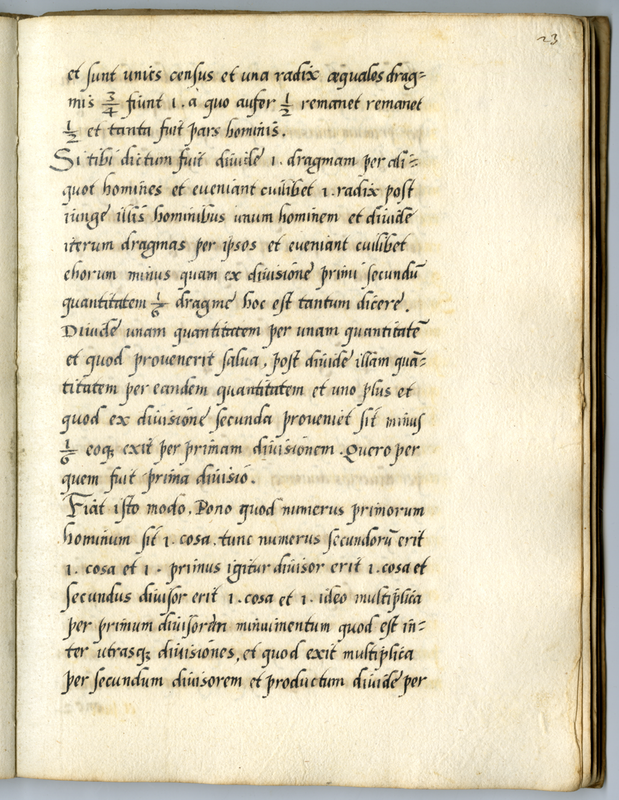 23
et sunt unius census et una radix æquales drag=
mis 3/4 fiunt 1. a quo aufer 1/2 remanet remanet
1/2 et tanta fuit pars hominis.
Si tibi dictum fuit diuide 1. dragmam per ali=
quot homines et eveniant cuilibet 1. radix post
iunge illis hominibus unum hominem et diuide
iterum dragmas per ipsos et eveniant cuilibet
ehorum minus quam ex diuisione primi secundū
quantitatem 1/6 dragme hoc est tantum dicere.
Diuide unam quantitatem per unam quantitatē
et quod provenerit salva, post diuide illam quā=
titatem per eandem quantitatem et uno plus et
quod ex diuisione secunda proveniet sit minus
1/6 eoqꝫ exit per primam diuisionem. Quero per
quem fuit prima diuisio.
Fiat isto modo. Pono quod numerus primorum
hominum sit 1. cosa. tunc numerus secundorū erit
1. cosa et 1. primus igitur diuisor erit 1. cosa et
secundus diuisor erit 1. cosa et 1. ideo multiplica
per primum minuimentum quod est in=
ter utrasqꝫ diuisiones, et quod exit multiplica
per secundum diuisorem et productum diuide per